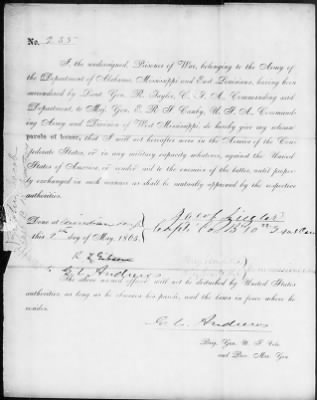 No. 235
I the undersigned, Prisoner of War, belonging to the Army of
the Department of Alabama, Mississippi and East Louisiana, having been
surrendered by Lieut. Gen. R. Taylor, C. S. A., Commanding said
Department, to Maj. Gen. E. R. S. Canby, U. S. A., Command-
ing Army and Division of West Mississippi, do hereby give my solemn
parole of honor, that I will not hereafter serve in the Armies of the Confe-
derate States, or in any military capacity whatever, against the United
States of America, or render aid to the enemies of the latter, until prop-
erly exchanged in such manner as shall be mutually approved by the respective
authorities.
Jacob Ziegler
Done at Meridian Miss
Capt Co B 10th
this 9th day of May, 1865.
R L Gibson
G. L. Andrews
The above named officer will not be disturbed by United States
authorities, as long as he observes his parole, and the laws in force where he
resides.
G. L. Andrews
Brig. Gen. U. S. Vols.
and Pro. Mar. Gen.